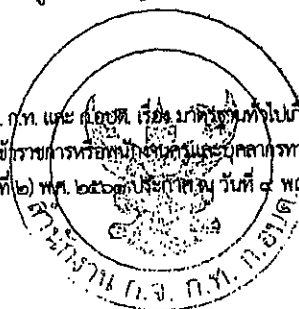 ก.ท. และ ก.อบต. เรื่อง มาตรฐานทั่วไปเกี่
ข้าราชการหรือพนักงานครูและบุคลากรทา
ที่ ๒) พ.ศ. ๒๕๖๑ ประกาศ ณ วันที่ ๔ พฤ
สำนักงาน ก.จ. ก.ท. ก.อบต.